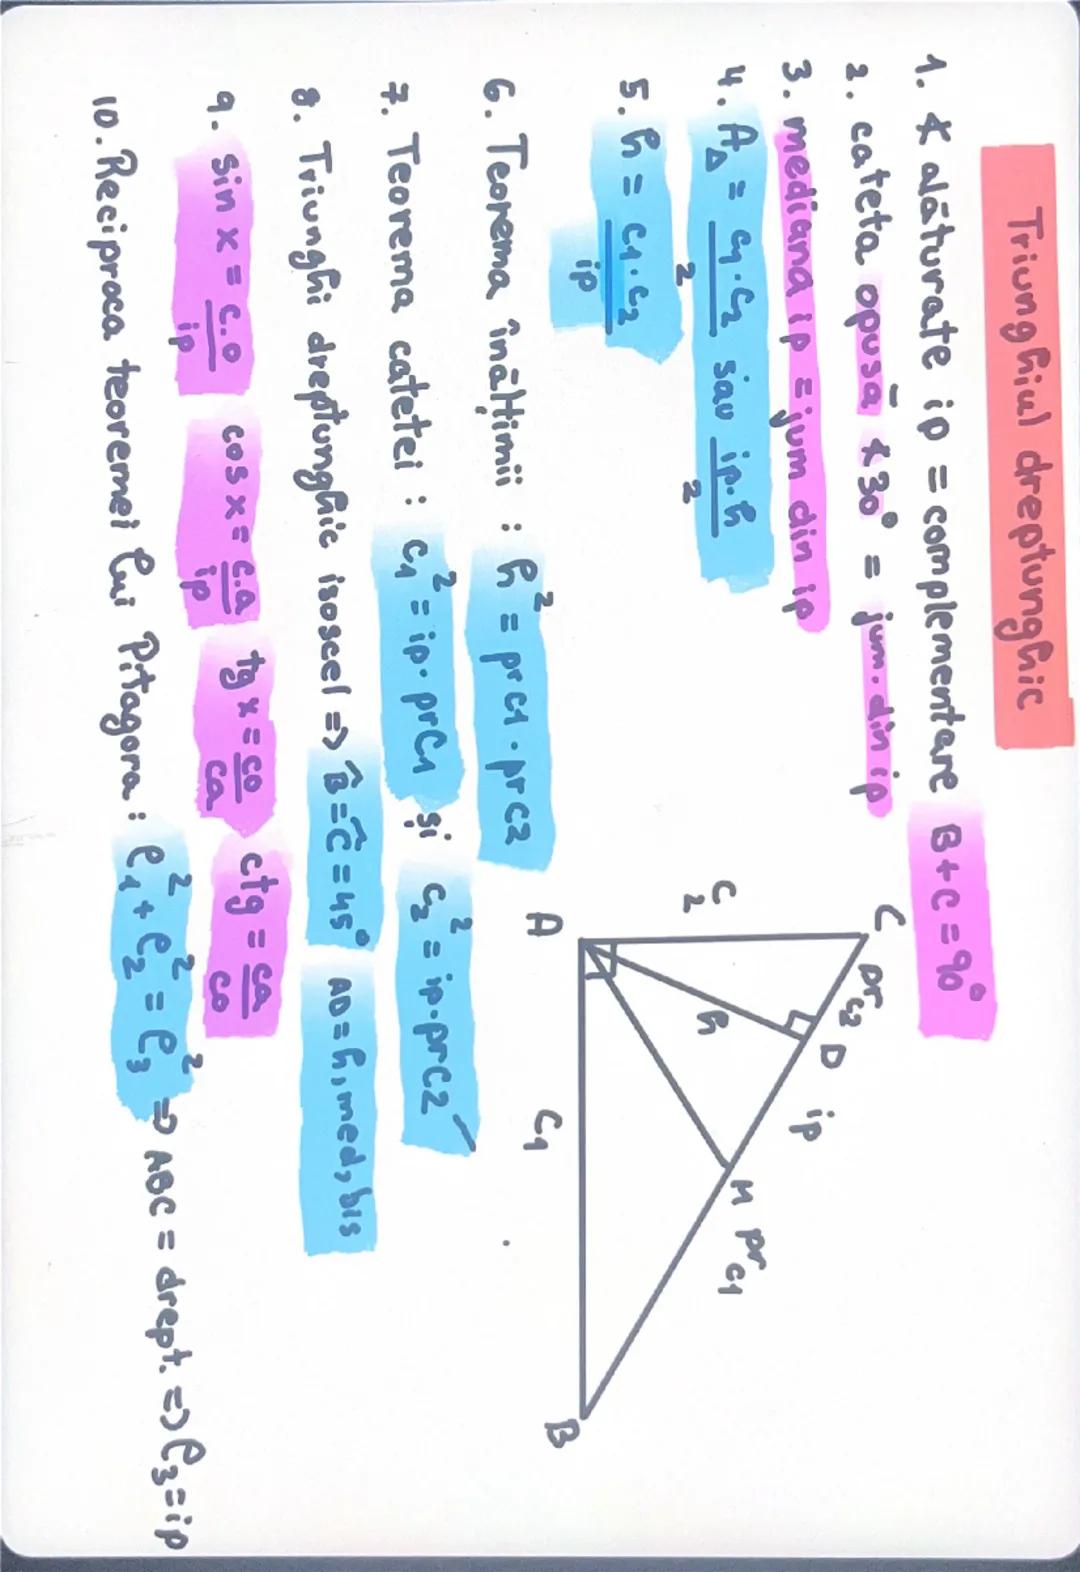 Triunghiul dreptunghic
1. ∢ alăturate ip = complementare B+C = 90°
2. cateta opusă ∢30° = jum. din ip
3. mediana ip = jum din ip
4. A△ = c1·c2/2 sau ip·h/2
5. h = c1·c2/ip
6. Teorema înălțimii : h² = prc1 · prc2
7. Teorema catetei : c1² = ip · prC1 și c2² = ip·prC2
8. Triunghi dreptunghic isoscel => B̂=Ĉ=45° AD=h, med, bis
9. sin x = c.o/ip cos x = c.a/ip tg x = co/ca ctg = ca/co
10. Reciproca teoremei lui Pitagora : l1² + l2² = l3² => ABC = drept. => l3=ip
C
prc2
D
ip
M
prc1
B
C2
h
A
C1